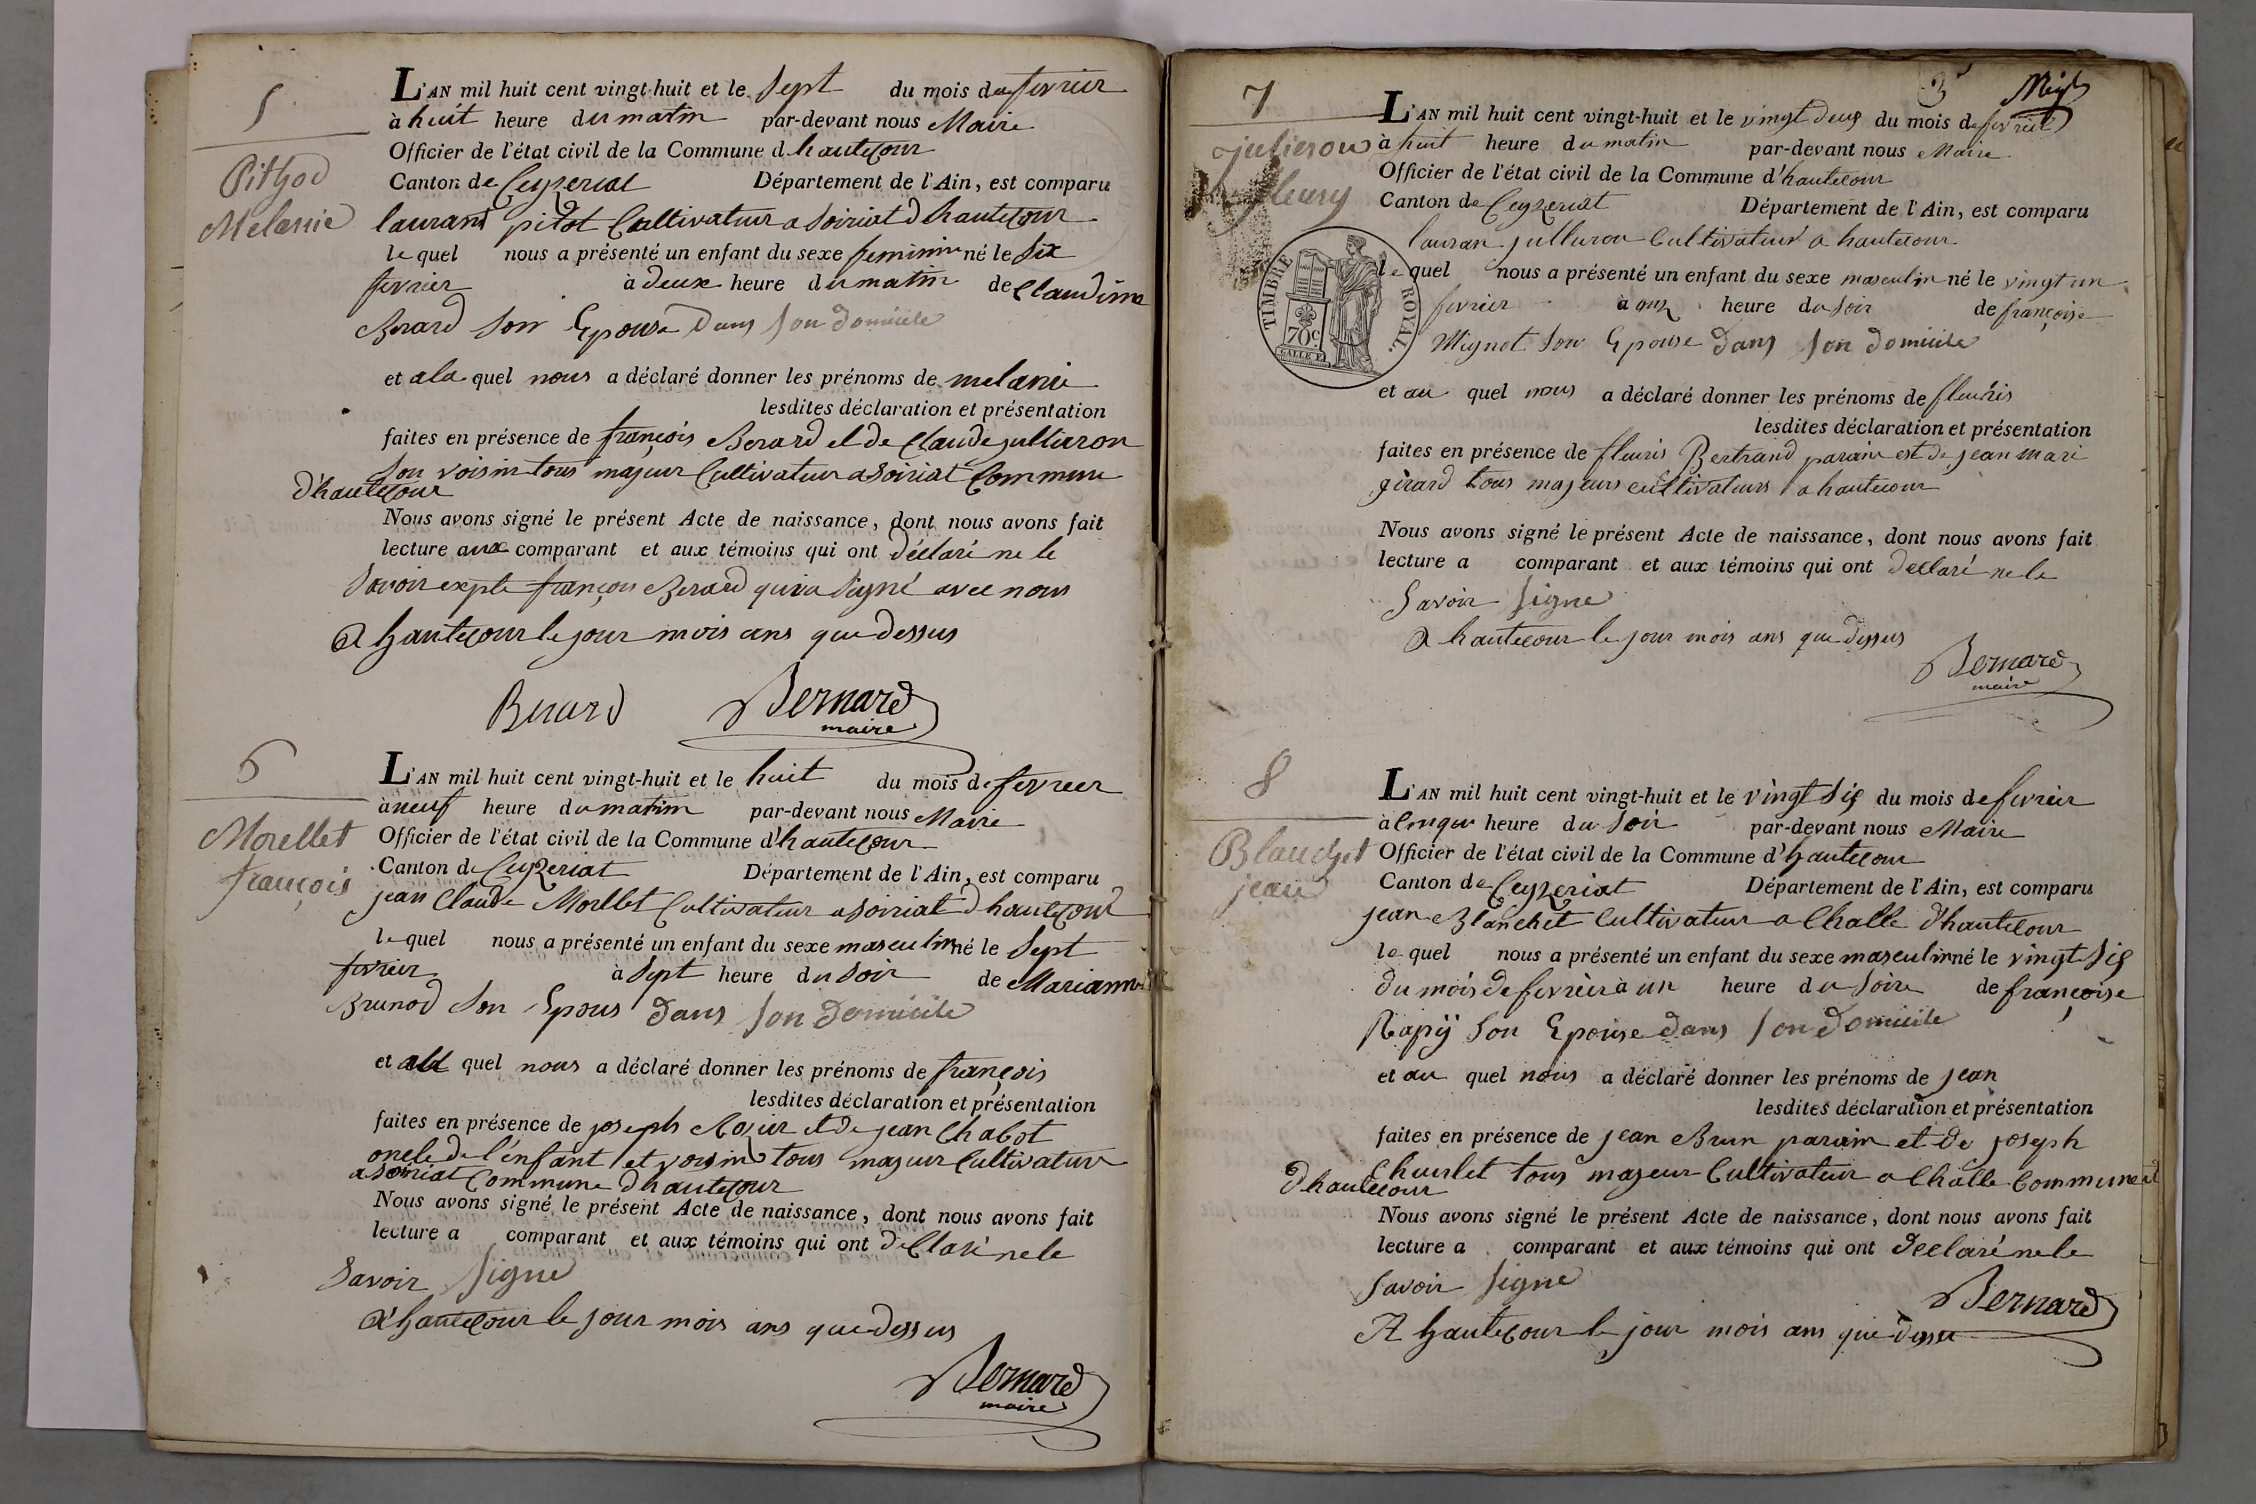 5
Pithod
Melanie
L'AN mil huit cent vingt-huit et le Sept du mois de fevrier
à huit heure du matin par-devant nous Maire
Officier de l'état civil de la Commune d hautecour
Canton de Ceyzeriat Département de l'Ain, est comparu
laurand pitot Cultivateur a Soiriat d hautecour
le quel nous a présenté un enfant du sexe feminin né le Six
fevrier à deux heure du matin de Claudine
Berard Son Epouse Dans Son domicile
et a la quel nous a déclaré donner les prénoms de melanie
lesdites déclaration et présentation
faites en présence de françois Berard et de Claude jullieron
Son voisin tous majeur Cultivateur a Soiriat Commune
d'hautecour
Nous avons signé le présent Acte de naissance, dont nous avons fait
lecture aux comparant et aux témoins qui ont déclaré ne le
Savoir expte françois Berard qui a Signé avec nous
A hautecour le jour mois ans que dessus
Berard Bernard
maire
6
Morellet
françois
L'AN mil huit cent vingt-huit et le huit du mois de fevrier
à neuf heure du matin par-devant nous Maire
Officier de l'état civil de la Commune d'hautecour
Canton de Ceyzeriat Département de l'Ain, est comparu
jean Claude Morllet Cultivateur a Soiriat d hautecour
le quel nous a présenté un enfant du sexe masculin né le Sept
fevrier à Sept heure du Soir de Marianne
Brunod Son Epous Dans Son Domicile
et au quel nous a déclaré donner les prénoms de françois
lesdites déclaration et présentation
faites en présence de joseph Rozier et de jean Chabot
oncle de l'enfant et voisin tous majeur Cultivateur
a Soiriat Commune d hautecour
Nous avons signé le présent Acte de naissance, dont nous avons fait
lecture a comparant et aux témoins qui ont déClaré ne le
Savoir Signe
A hautecour le jour mois ans que dessus
Bernard
maire
3
7
julieron
fleury
TIMBRE ROYAL.
70c
L'AN mil huit cent vingt-huit et le vingt deux du mois de fevrier
à huit heure du matin par-devant nous Maire
Officier de l'état civil de la Commune d'hautecour
Canton de Ceyzeriat Département de l'Ain, est comparu
lauran jullieron Cultivateur a hautecour
le quel nous a présenté un enfant du sexe masculin né le vingt un
fevrier à onz heure du Soir de françoise
Mignot Son Epouse Dans Son domicile
et au quel nous a déclaré donner les prénoms de fleuris
lesdites déclaration et présentation
faites en présence de fleuris Bertrand parain est de jean mari
girard tous majeurs cultivateurs a hautecour
Nous avons signé le présent Acte de naissance, dont nous avons fait
lecture a comparant et aux témoins qui ont declaré ne le
Savoir Signe
A hautecour le jour mois ans que dessus
Bernard
maire
8
Blanchet
jean
L'AN mil huit cent vingt-huit et le vingt Six du mois de fevrier
à Cinque heure du Soir par-devant nous Maire
Officier de l'état civil de la Commune d'hautecour
Canton de Ceyzeriat Département de l'Ain, est comparu
jean Blanchet Cultivateur a Challe d'hautecour
le quel nous a présenté un enfant du sexe masculin né le vingt Six
du mois de fevrier à un heure du Soire de françoise
Rapy Son Epouse dans Son domicile
et au quel nous a déclaré donner les prénoms de jean
lesdites déclaration et présentation
faites en présence de jean Brun parain et de joseph
tous majeur Cultivateur a Challe Commune
d hautecour
Nous avons signé le présent Acte de naissance, dont nous avons fait
lecture a comparant et aux témoins qui ont declaré ne le
Savoir Signe
Bernard
A hautecour le jour mois ans que dessu